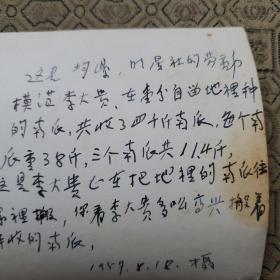 这是 明星社的劳动
模范李大贵,在自留地裡种
的南瓜,共收了四千斤南瓜,每个南
瓜重38斤,三个南瓜共114斤,
这是李大贵正在把地裡的南瓜往
家裡搬,你看李大贵多么高兴搬着
收的南瓜。
1957.8.18.